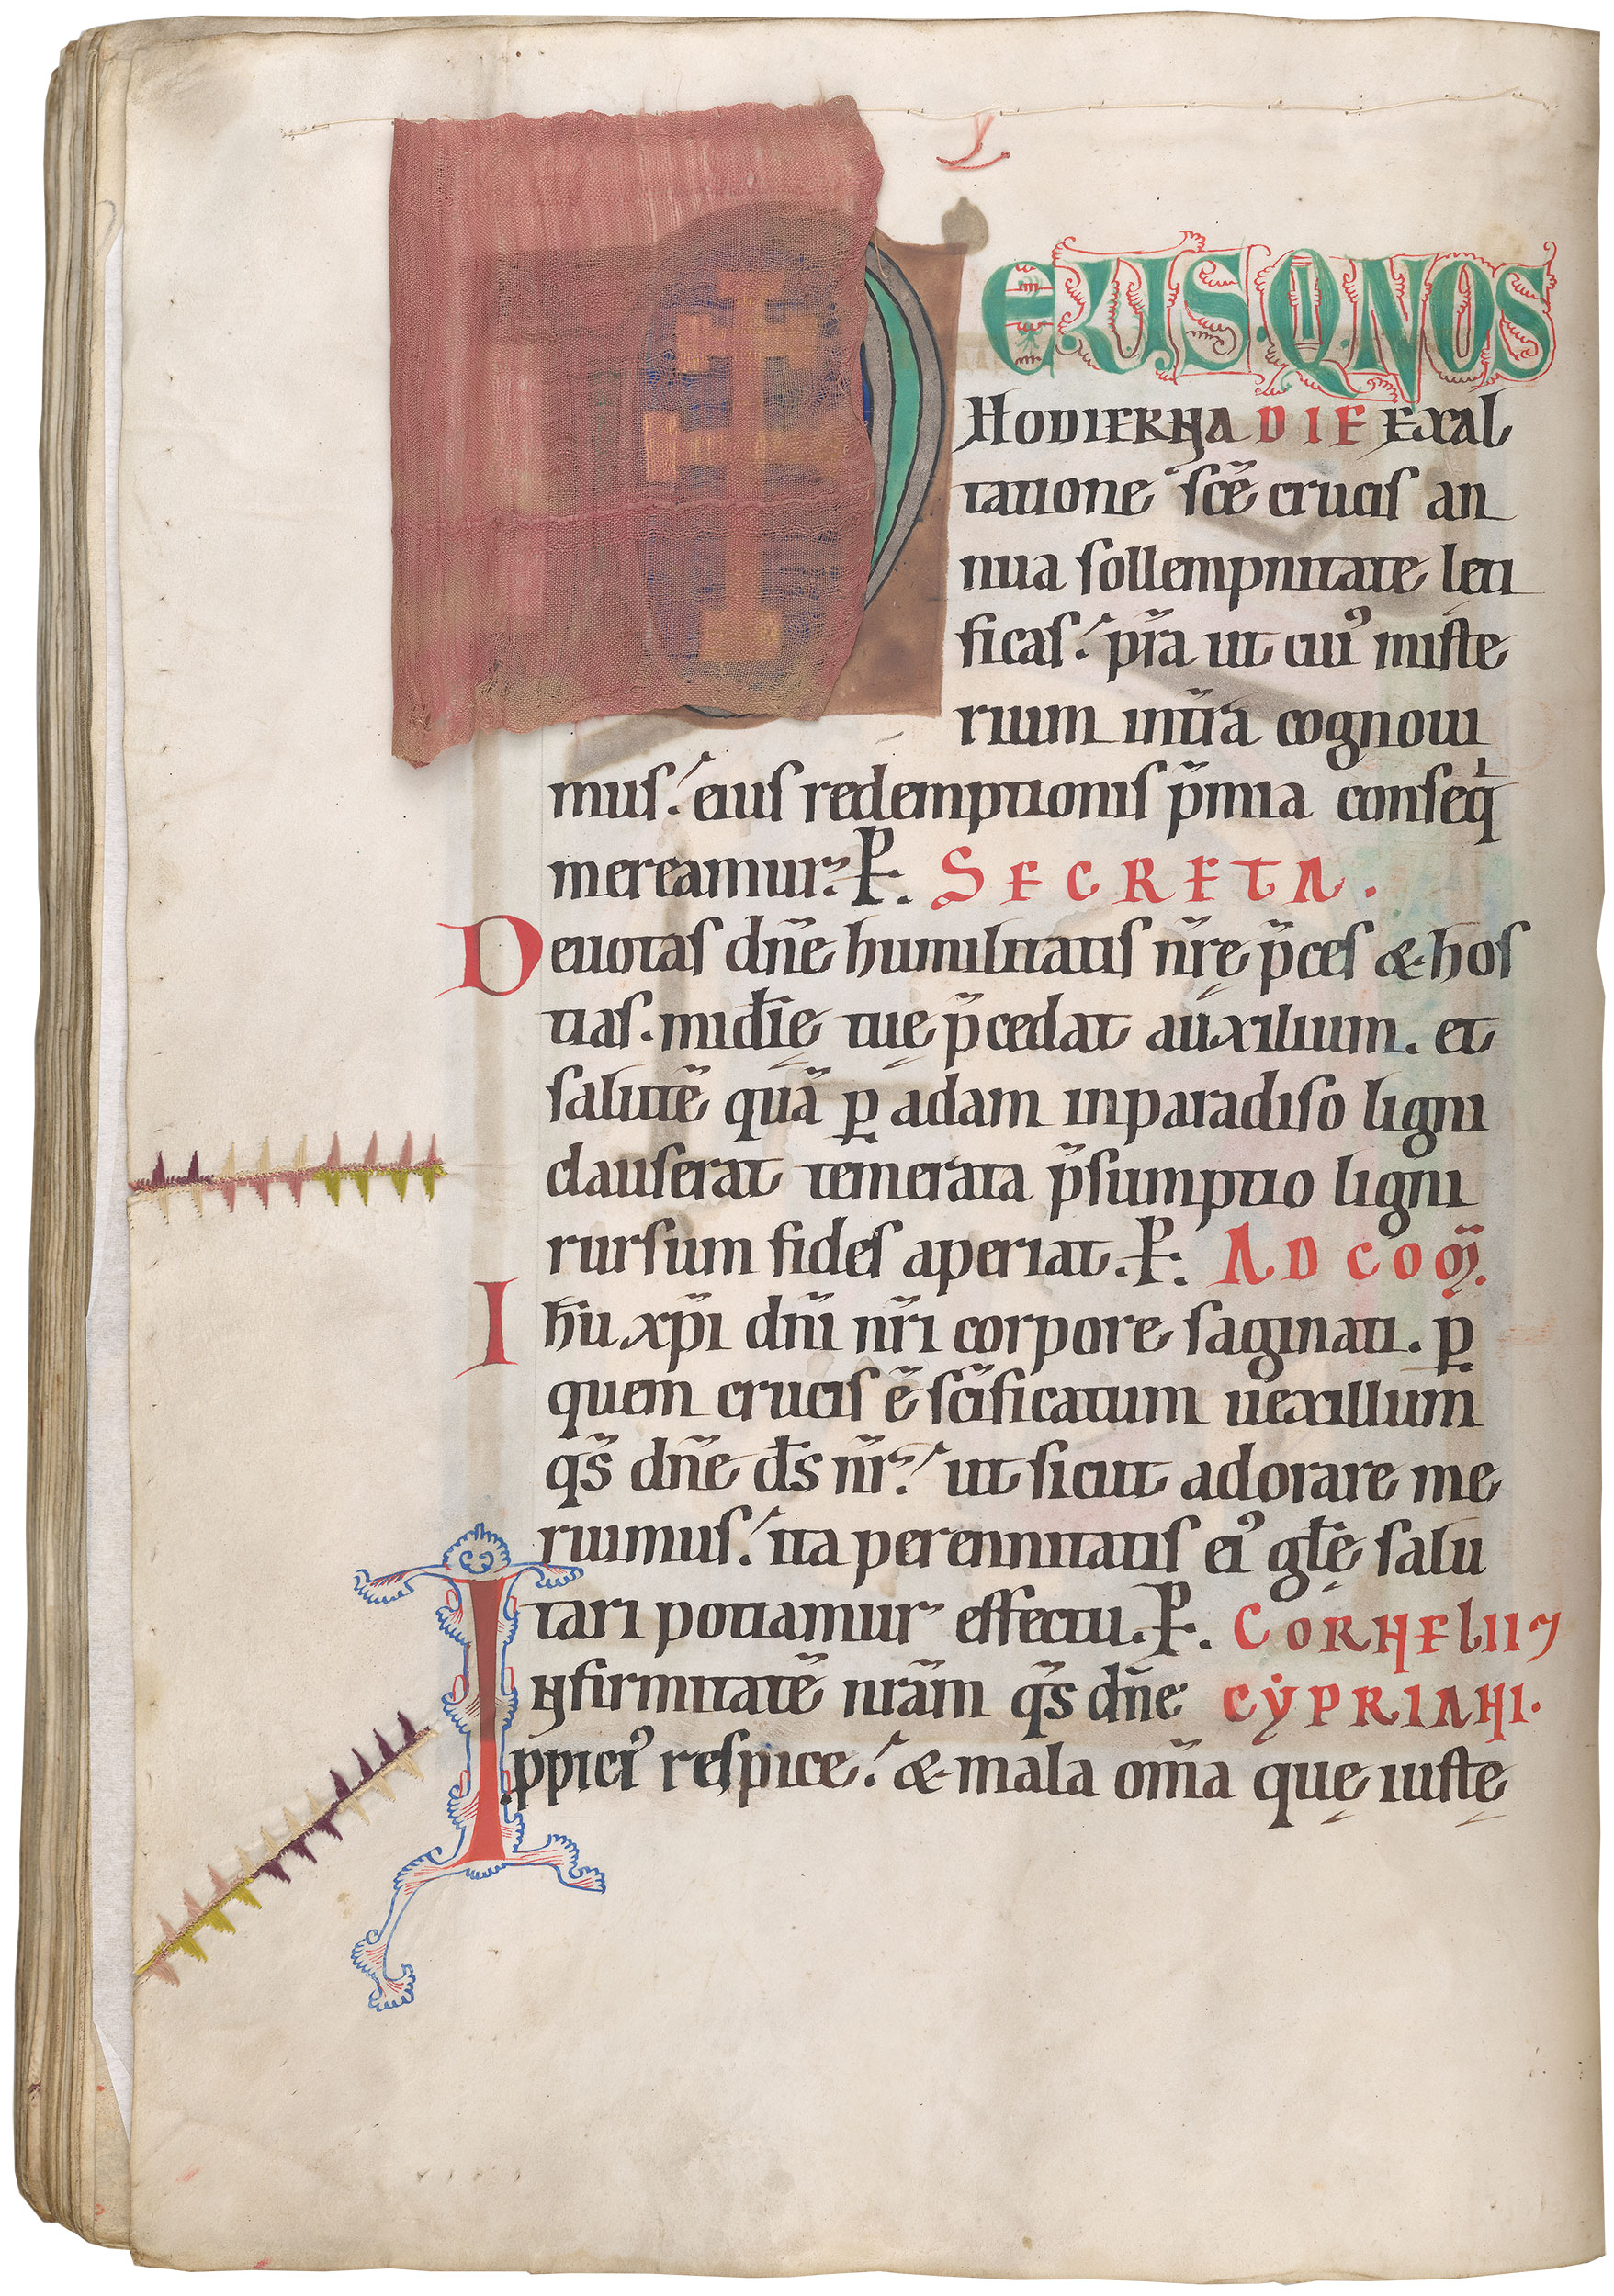 EUS. Q. NOS
HODIERNA DIE EXAL
tatione sc̄e crucis an
nua sollempnitate leti
ficas. p̄ra ut cuiꝰ miste
rium int̄ra cognoui
mus. eius redemptionis p̄mia conseqͥ
mereamur. P.
SECRETA.
Deuotas dn̄e humilitatis nr̄ę p̄ces & hos
tias. mid̄ię tuę p̄cedat auxilium. et
salutē quā ꝑ adam inparadiso ligni
clauserat temerata p̄sumptio ligni
rursum fides aperiat. P. AD COM̄.
Ih̄u xp̄i dn̄i nr̄i corpore saginati. ꝑ
quem crucis ē sc̄ificatum uexillum
qs̄ dn̄e d̄s nr̄. ut sicut adorare me
ruimus. ita perennitatis eiꝰ gl̄ę salu
tari potiamur effectu. P. CORNELII ⁊
INfirmitatē nr̄am qs̄ dn̄e CYPRIANI.
ppiciꝰ respice. & mala om̄a quę iustę